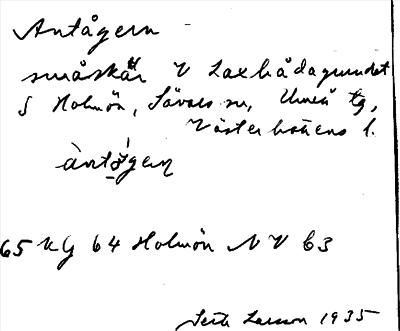 Antågern
småskär V Laxbådagrundet
S Holmön, Sävars sn, Umeå tg,
Västerbottens l.
àntågen
65 KG 64 Holmön NV 63
Larsson 1935